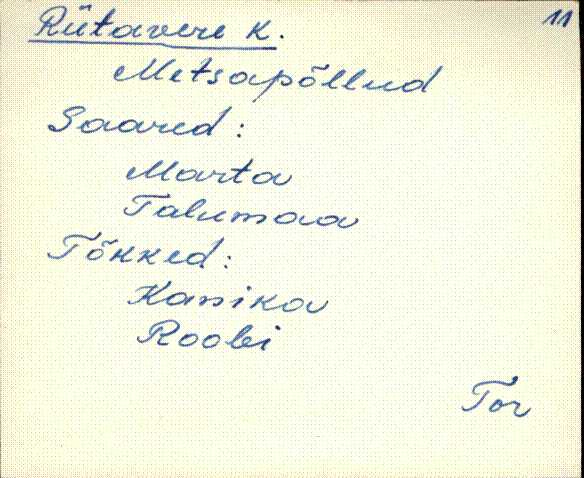 Rütavere k. 11
Metsapõllud
Saared:
Marta
Talumaa
Tõkked:
Kassika
Roobi
Tor